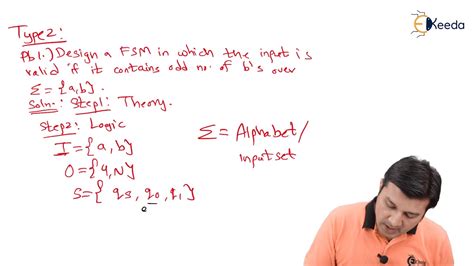 Ekeeda
Type2:
Pb1.) Design a FSM in which the input is
valid if it contains odd no. of b's over
Σ = {a,b}.
Soln:- Step1: Theory.
Step2: Logic
Σ = Alphabet/
input set
I = {a, b}
O = {Y, N}
S = { qs, q0, q1 }